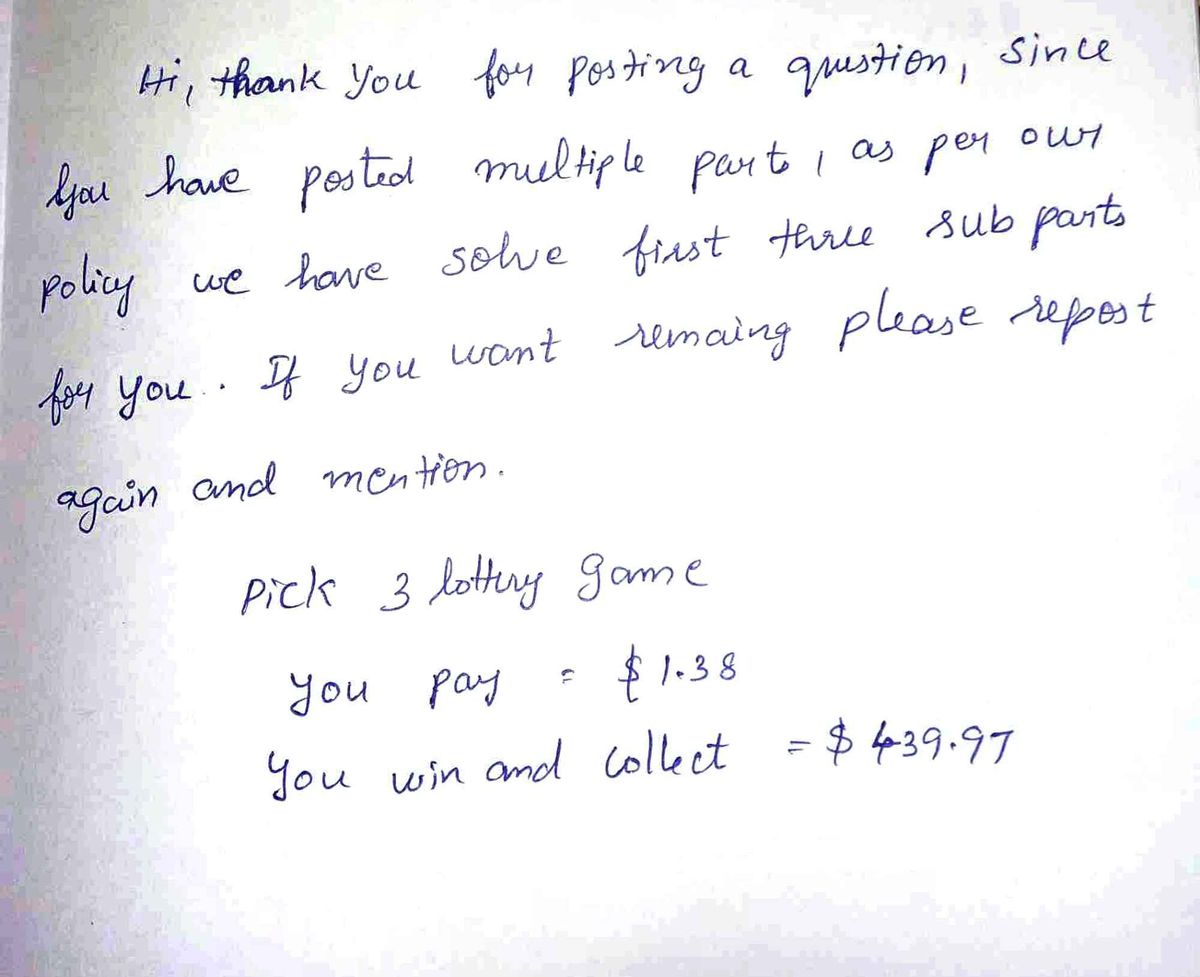 Hi, thank you for posting a question, since
you have posted multiple part, as per our
policy we have solve first three sub parts
for you. If you want remaing please repost
again and mention.
Pick 3 lottery game
you pay = $1.38
You win and collect = $439.97